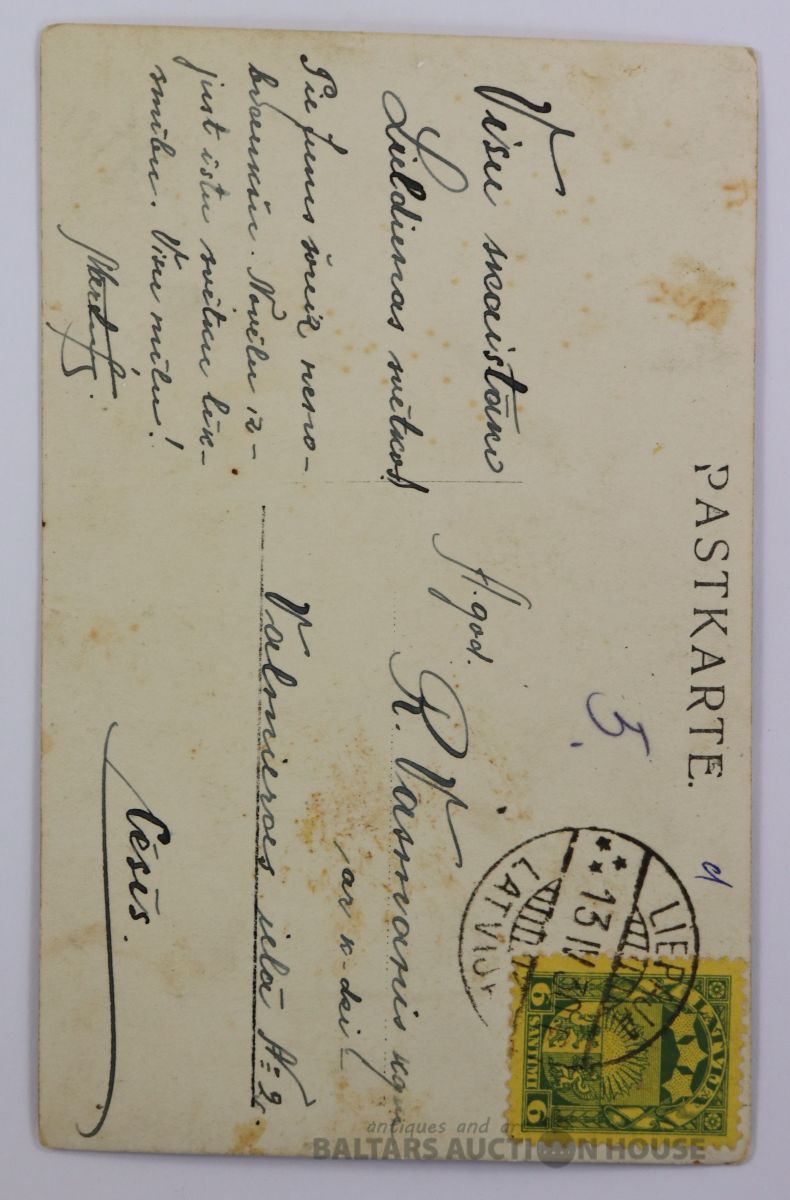 PASTKARTE.
Visu skaistāko
Lieldienas svētkos
Pie Jums šoreiz neno-
braukšu. Novēlu iz-
just īstu svētku līk-
smību. Visu mīlu!
A. god.
R. Vasmanis kgm
ar k-dzi
Valmieras ielā № 2.
Cēsīs.
5.
LIEPĀJA
13 IV
LATVIJA
LATVIJA
6 SANTIMI 6
antiques and ar
BALTARS AUCTION HOUSE